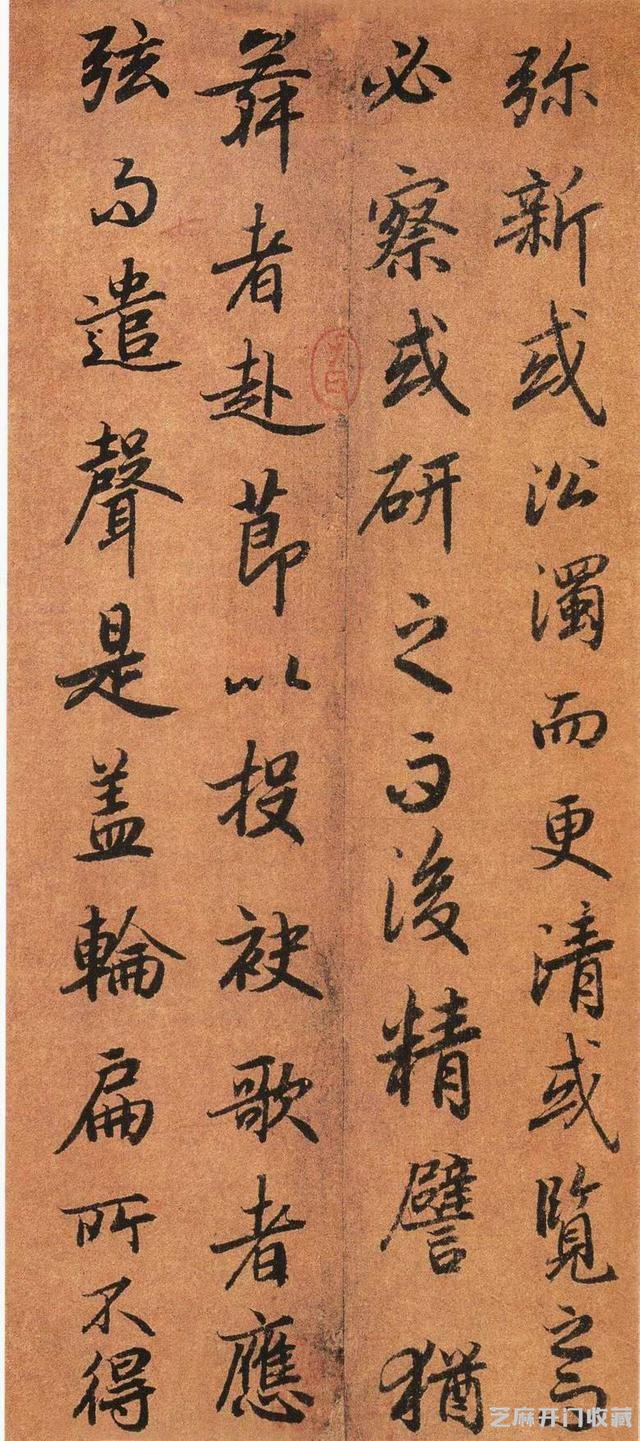 弥新或沿濁而更清或覽之而
必察或研之而後精譬猶
舞者赴節以投袂歌者應
弦而遣聲是盖輪扁所不得
芝麻开门收藏